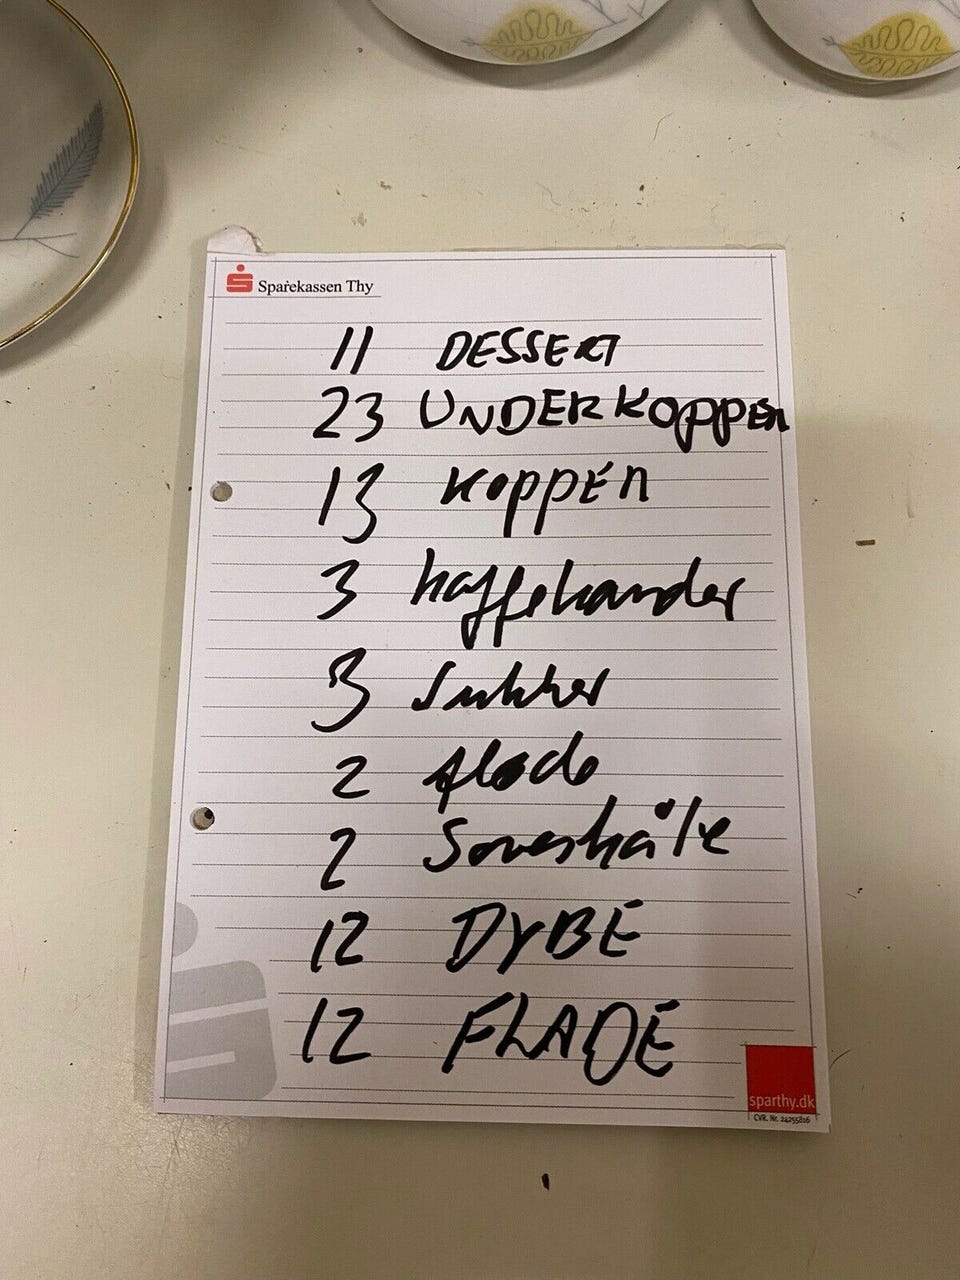 Sparekassen Thy
11 DESSERT
23 UNDERKOPPEN
13 KOPPEN
3 kaffekander
3 Sukker
2 fløde
2 Soveskåle
12 DYBE
12 FLADE
sparthy.dk
CVR. Nr. 24255816